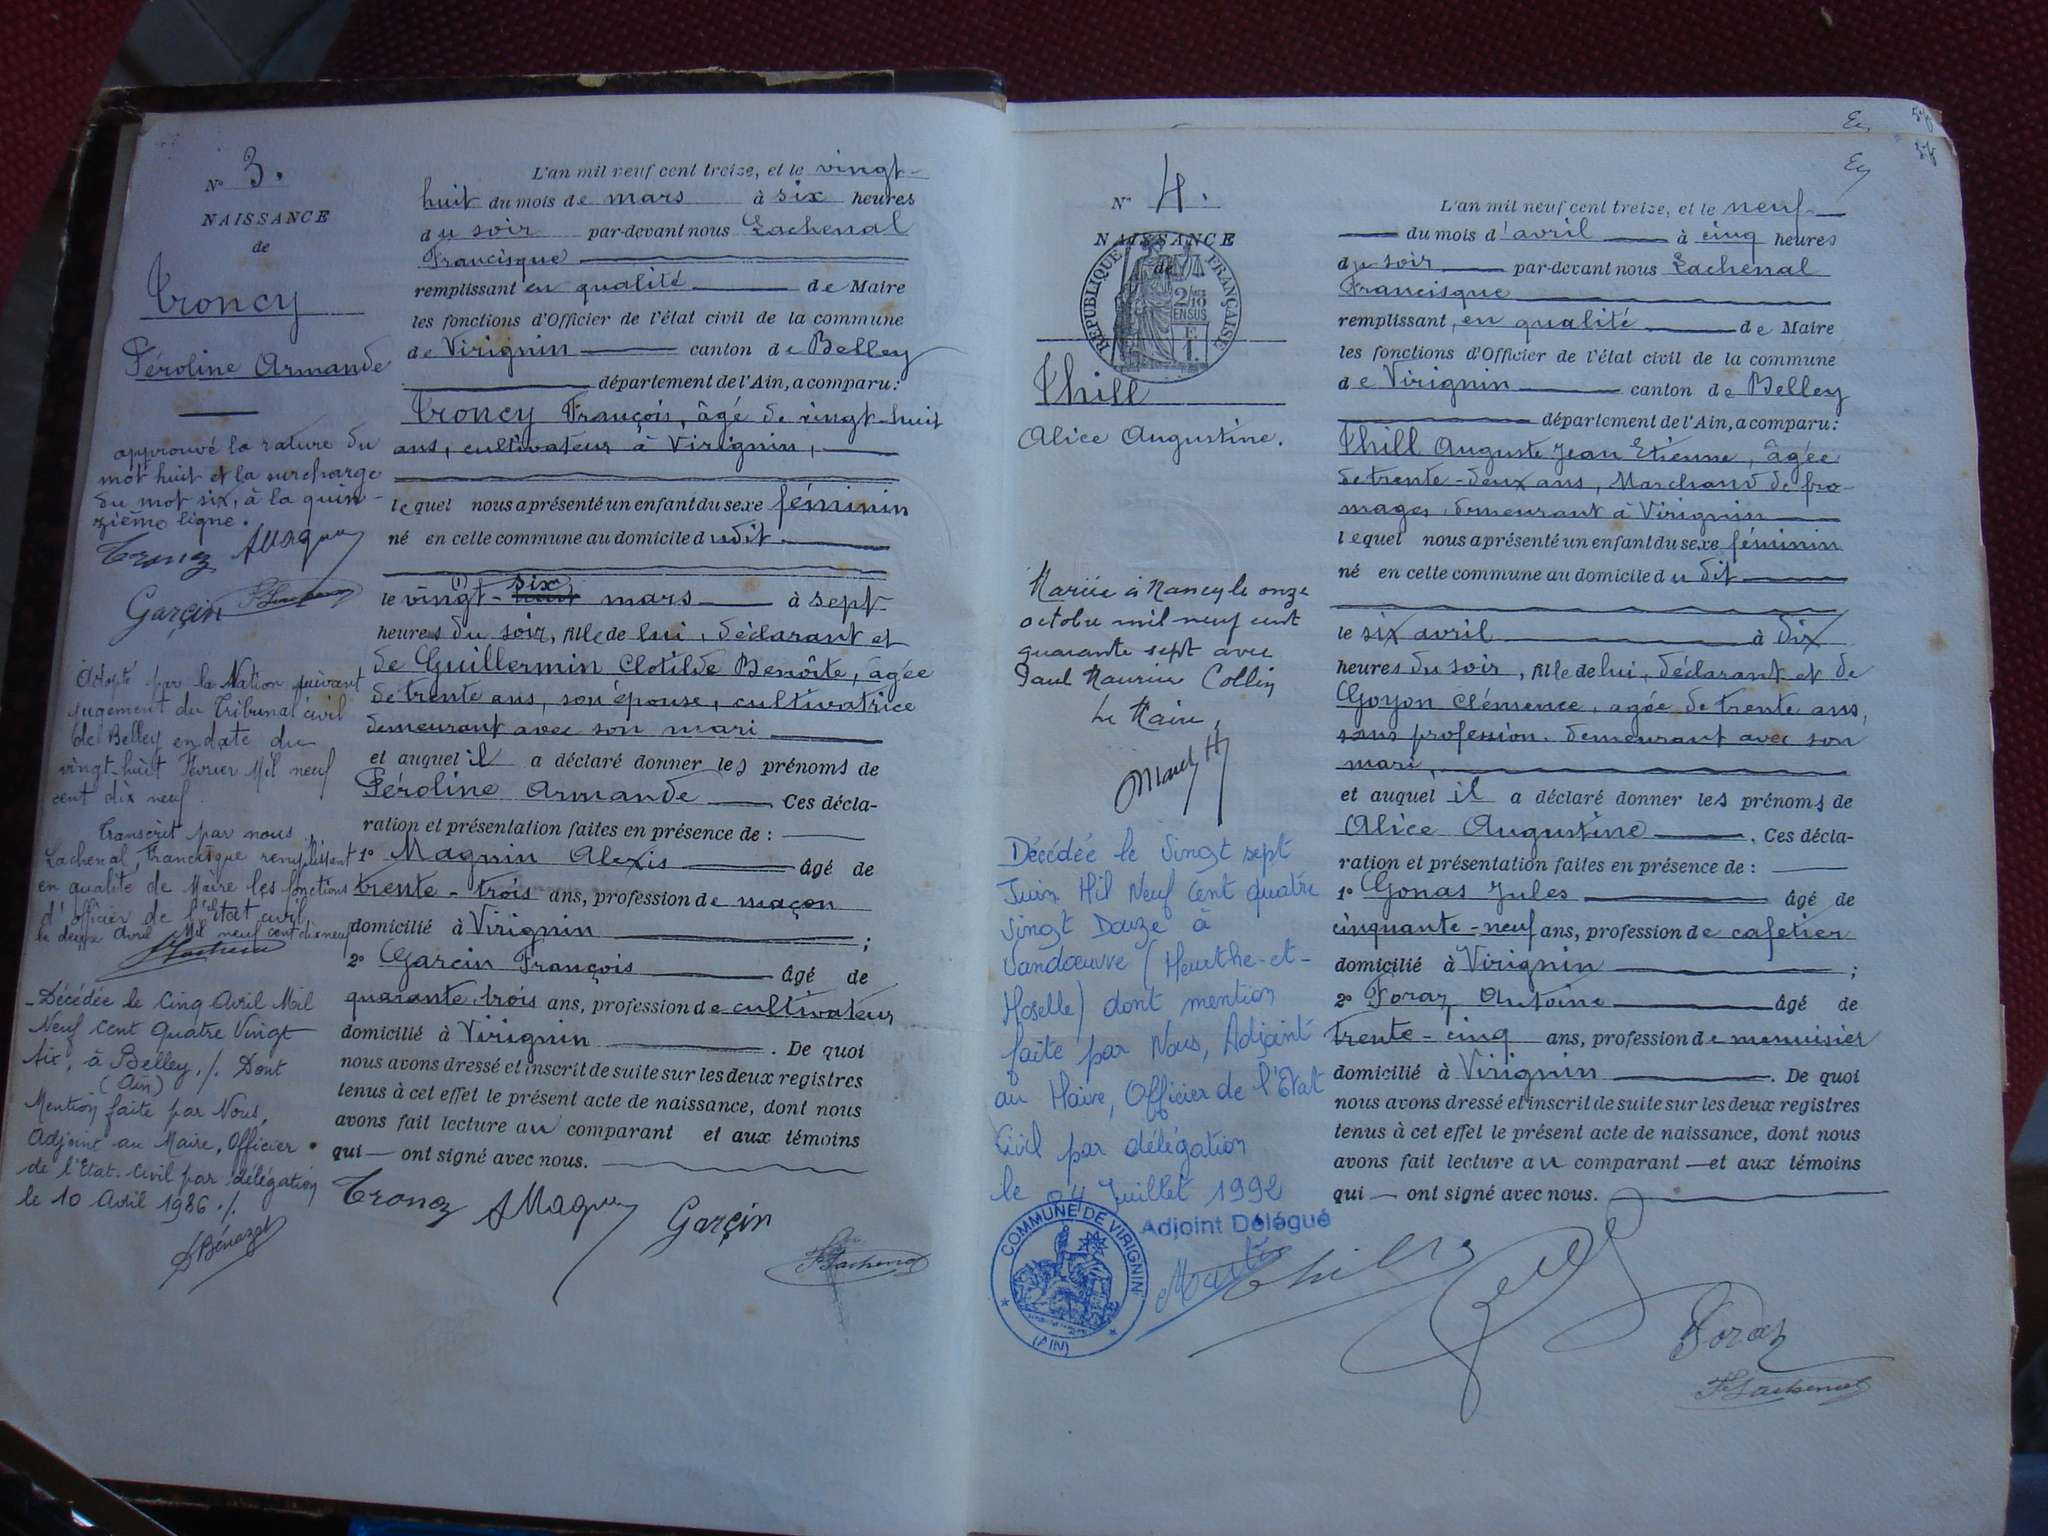 N° 3.
NAISSANCE
de
Troncy
Féroline Armande
approuvé la rature du
mot huit et la surcharge
du mot six, à la quin-
zième ligne.
Troncy AMagnin
Garçin
Adopté par la Nation suivant
jugement du Tribunal civil
de Belley en date du
vingt-huit Février Mil neuf
cent dix neuf
Transcrit par nous
Lachenal, Francisque remplissant
en qualité de Maire les fonctions
d'officier de l'Etat civil,
le deux Avril Mil neuf cent dix neuf
Décédée le Cinq Avril Mil
Neuf Cent Quatre Vingt
Six, à Belley ./. Dont
(Ain)
Mention faite par Nous,
Adjoint au Maire, Officier
de l'Etat-Civil par délégation
le 10 Avril 1986 ./.
L'an mil neuf cent treize, et le vingt-
huit du mois de mars à six heures
du soir par-devant nous Lachenal
Francisque
remplissant en qualité de Maire
les fonctions d'Officier de l'état civil de la commune
de Virignin canton de Belley
département de l'Ain, a comparu:
Troncy François, âgé de vingt-huit
ans, cultivateur à Virignin,
lequel nous a présenté un enfant du sexe féminin
né en cette commune au domicile dudit
(1) six
le vingt-huit mars à sept
heures du soir, fille de lui, déclarant et
de Guillermin Clotilde Benoîte, âgée
de trente ans, son épouse, cultivatrice
demeurant avec son mari
et auquel il a déclaré donner les prénoms de
Féroline Armande Ces décla-
ration et présentation faites en présence de :
1° Magnin Alexis âgé de
trente-trois ans, profession de maçon
domicilié à Virignin ;
2° Garcin François âgé de
quarante-trois ans, profession de cultivateur
domicilié à Virignin . De quoi
nous avons dressé et inscrit de suite sur les deux registres
tenus à cet effet le présent acte de naissance, dont nous
avons fait lecture au comparant et aux témoins
qui ont signé avec nous.
Troncy AMagnin Garçin
FLachenal
N° 4.
NAISSANCE
de
RÉPUBLIQUE FRANÇAISE
2/10 EN SUS
Thill
Alice Augustine.
Mariée à Nancy le onze
octobre mil neuf cent
quarante sept avec
Paul Maurice Collin
Le Maire,
Décédée le Vingt sept
Juin Mil Neuf Cent quatre
Vingt Douze à
Vandœuvre (Meurthe-et-
Moselle) dont mention
faite par Nous, Adjoint
au Maire, Officier de l'Etat
Civil par délégation
le 04 Juillet 1992
Adjoint Délégué
COMMUNE DE VIRIGNIN
(AIN)
L'an mil neuf cent treize, et le neuf
du mois d'avril à cinq heures
du soir par-devant nous Lachenal
Francisque
remplissant en qualité de Maire
les fonctions d'Officier de l'état civil de la commune
de Virignin canton de Belley
département de l'Ain, a comparu:
Thill Auguste Jean Etienne, âgée
de trente-deux ans, Marchand de fro-
mages, demeurant à Virignin
lequel nous a présenté un enfant du sexe féminin
né en cette commune au domicile du dit
le six avril à dix
heures du soir, fille de lui, déclarant et de
Goyon Clémence, agée de trente ans,
sans profession, demeurant avec son
mari,
et auquel il a déclaré donner les prénoms de
Alice Augustine . Ces décla-
ration et présentation faites en présence de :
1° Gonas Jules âgé de
cinquante-neuf ans, profession de cafetier
domicilié à Virignin ;
2° Foraz Antoine âgé de
trente-cinq ans, profession de menuisier
domicilié à Virignin . De quoi
nous avons dressé et inscrit de suite sur les deux registres
tenus à cet effet le présent acte de naissance, dont nous
avons fait lecture au comparant et aux témoins
qui ont signé avec nous.
Thill
Foraz
FLachenal